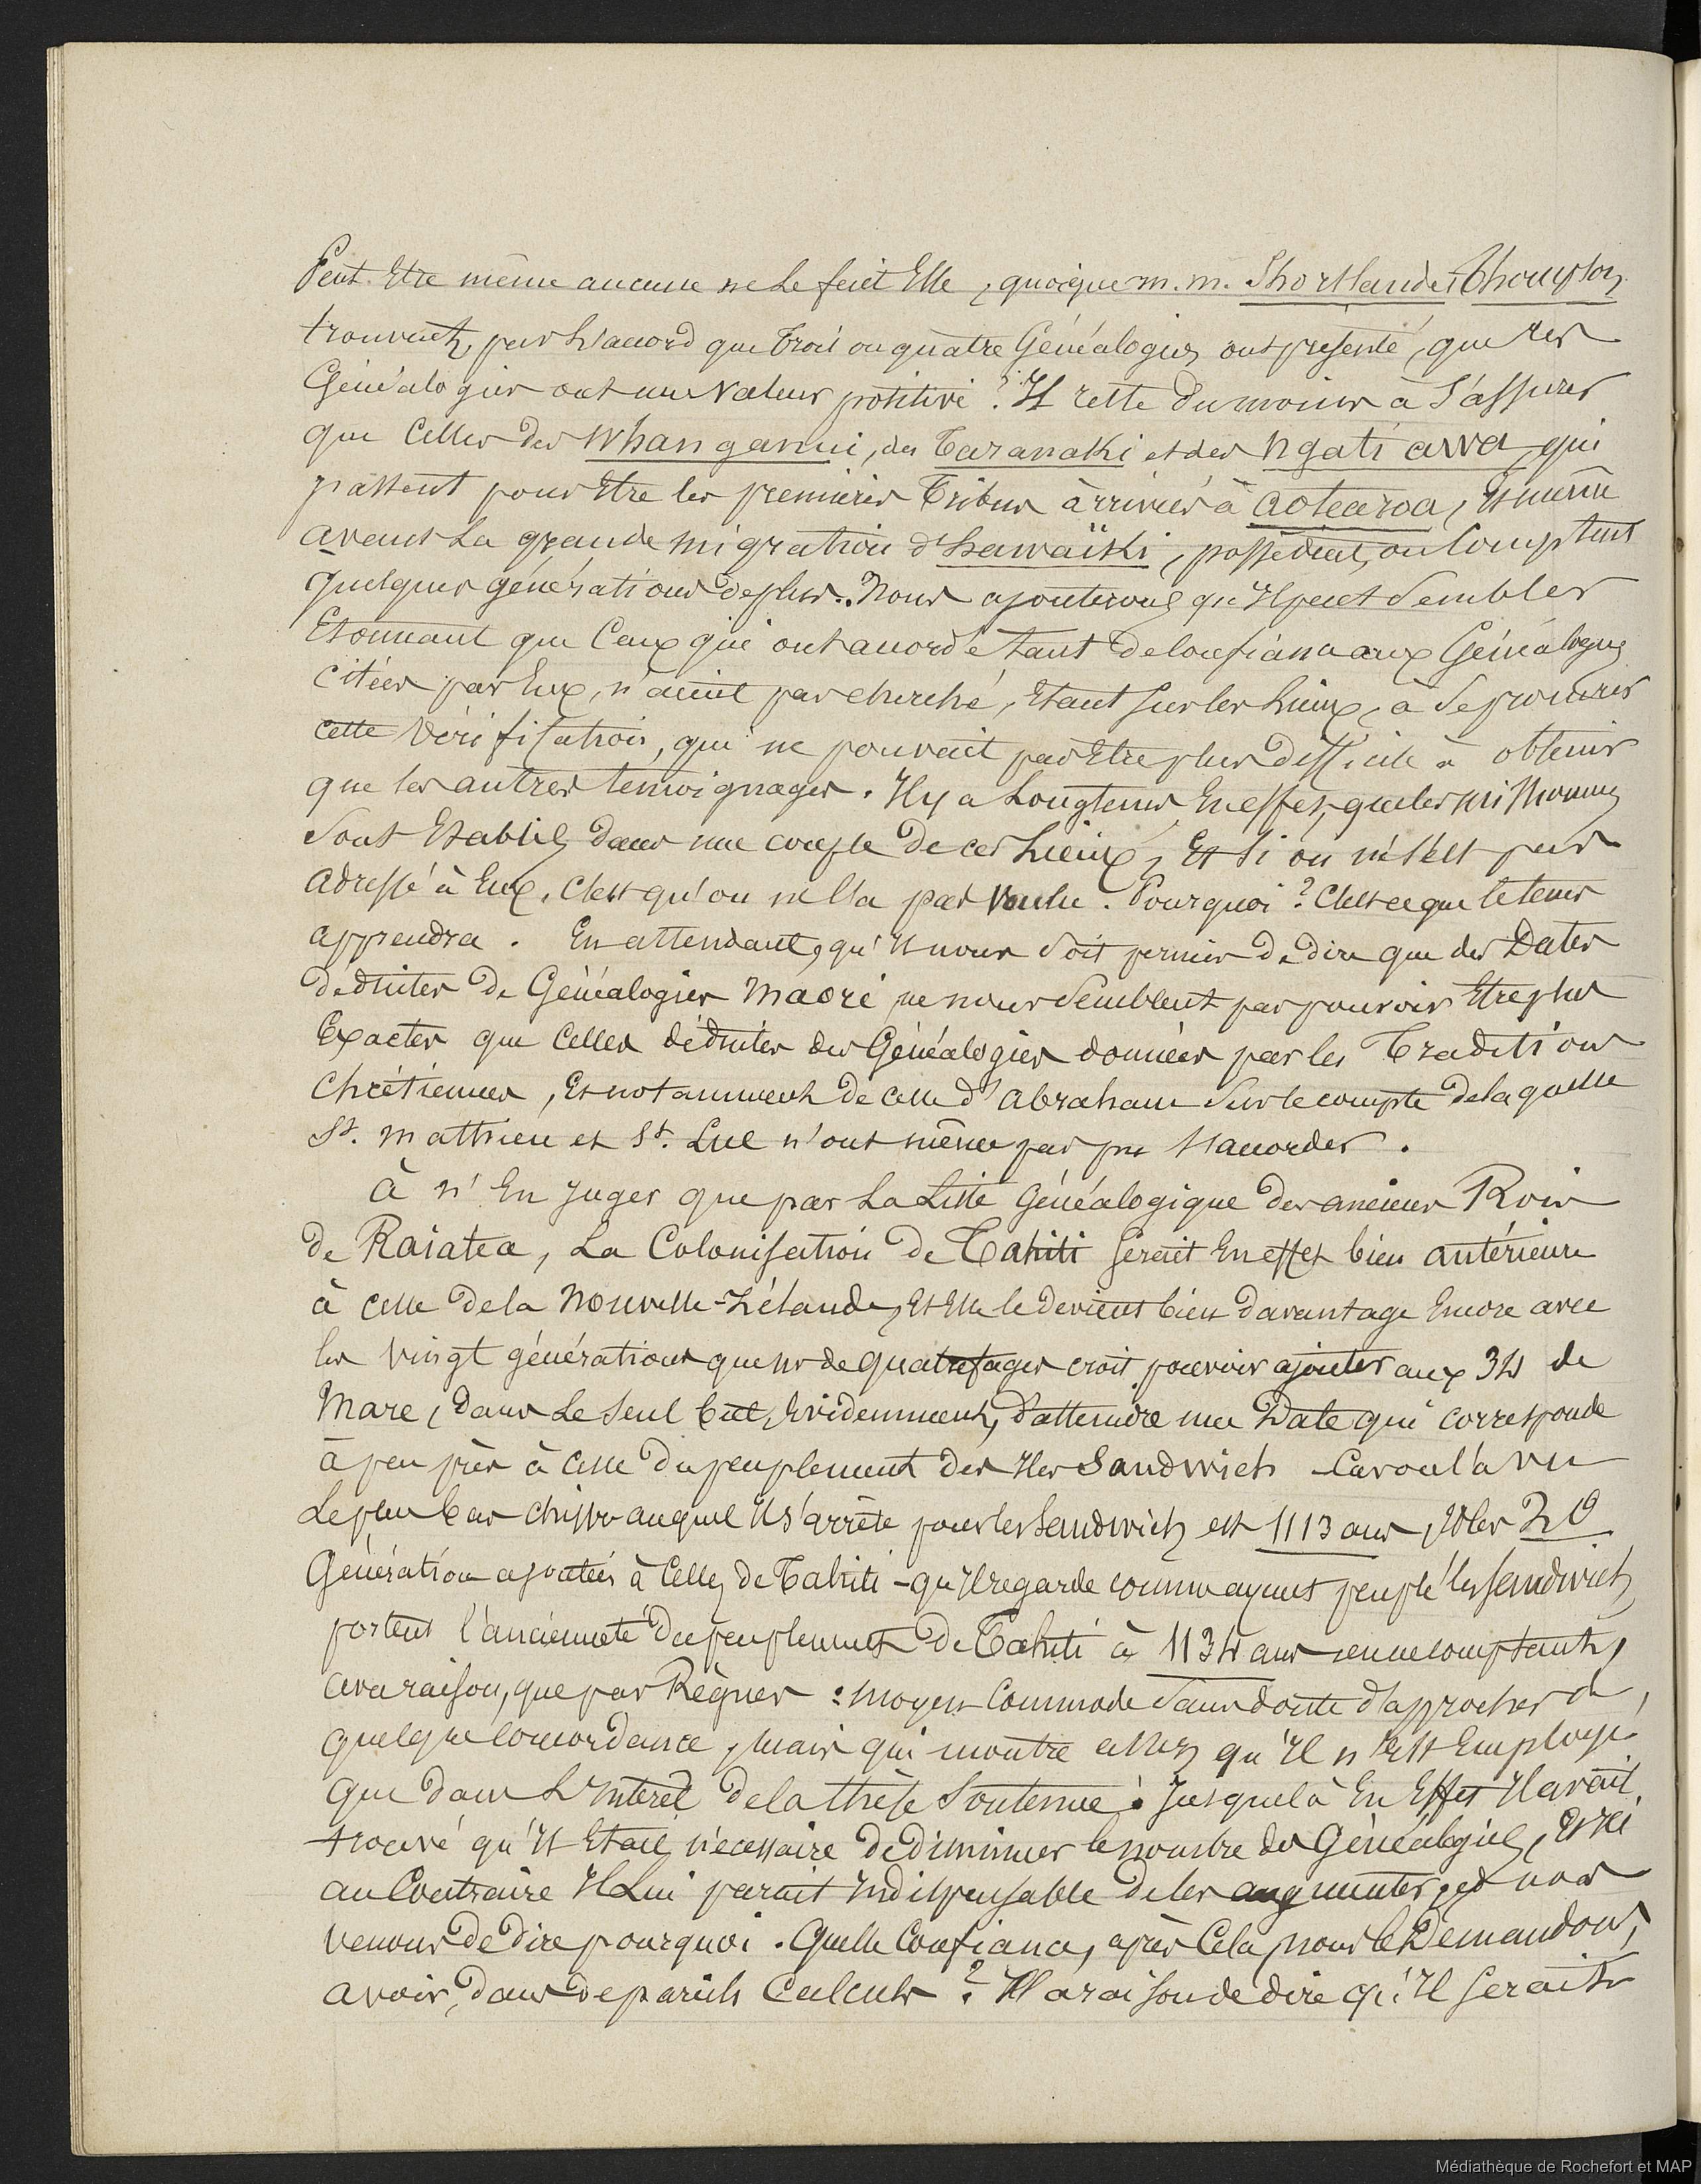 Peut Etre même aucune ne le fait Elle, quoique m. m. Shortland et Thompson
trouvent, par l'accord que trois ou quatre Généalogies ont présenté, que les
Généalogies ont une valeur positive ? Il reste du moins à s'assurer
que celles des Whanganui, des Taranaki et des Ngati awa, qui
passent pour Etre les premières Tribus àrrivées à aotearoa, et même
avant la grande migration d'hawaïki, possèdent, ou comptent
quelques générations de plus. Nous ajouterons qu'Il peut Sembler
Etonnant que Ceux qui ont accordé tant de Confiance aux Généalogies
citées par Eux, n'aient pas cherché, Etant sur les Lieux, à Se procurer
cette Vérification, qui ne pouvait pas Etre plus difficile à obtenir
que les autres temoignages. Il y a Longtems, En effet, que les missionnes
Sont Etablis dans une couple de ces Lieux, Et Si on ne s'est pas
adressé à Eux, C'est qu'on ne l'a pas voulu. Pourquoi ? C'est ce que le tems
apprendra. En attendant, qu'Il nous Soit permis de dire que des Dates
déduites de Généalogies Maori ne nous Semblent pas pouvoir Etre plus
Exactes que Celles déduites des Généalogies données par les Traditions
Chrétiennes, Et notamment de celle d'Abraham Sur le compte de laquelle
St. Mathieu et St. Luc n'ont même pas pu s'accorder.
À n'En Juger que par La Liste Généalogique des anciens Rois
de Raiatea, La Colonisation de Tahiti serait En effet bien antérieure
à celle de la Nouvelle-Zélande, Et Elle le devient bien davantage Encore avec
les vingt générations que mr de Quatrefages croit pouvoir ajouter aux 34 de
Mare, dans Le Seul but, Evidemment, d'atteindre une Date qui corresponde
à peu près à celle du peuplement des Iles Sandwich - Car on l'a vu
Le plus bas chiffre auquel Il s'arrête pour les Sandwich est 1113 ans, Et les 20
Génération ajoutées à Celles de Tahiti - qu'Il regarde comme ayant peuplé les Sandwich,
portent l'ancienneté du peuplement de Tahiti à 1134 ans en ne comptant,
avec raison, que par Règnes : moyen Commode Sans doute d'approcher de
quelque concordance, mais qui montre assez qu'Il n'est Employé
que dans L'Intérêt de la thèse Soutenue. Jusque là En Effet Il avait
trouvé qu'Il Etait nécessaire de diminuer le nombre des Généalogies, Et ici
au Contraire Il Lui parait Indispensable de les augmenter, et nous
venons de dire pourquoi. Quelle Confiance, après Cela, nous le Demandons,
avoir, dans de pareils Calculs ? Il a raison de dire qu'Il serait
Médiathèque de Rochefort et MAP